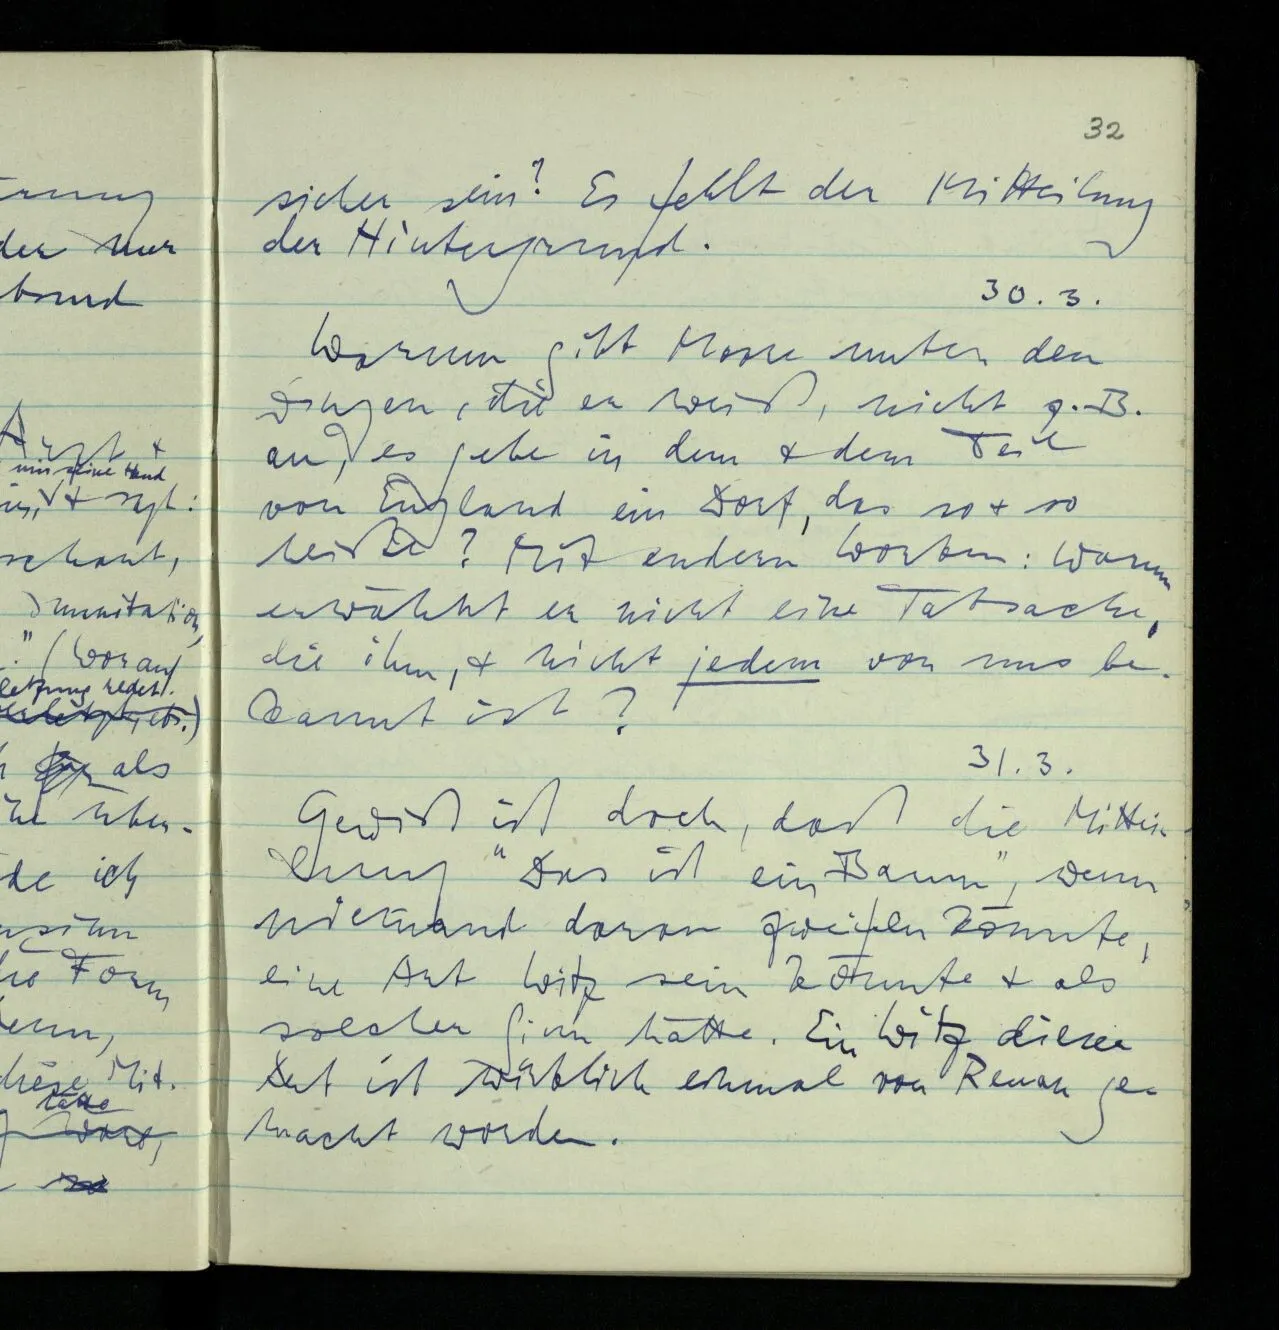 rung
der nur
Arzt &
mir seine Hand
hin, & sagt:
schaut,
." (Worauf
letzung redet.
als
über-
de ich
Form
diese Mit-
hätte
32
sicher sein? Es fehlt der Mitteilung
der Hintergrund.
30.3.
Warum gibt Moore unter den
Dingen, die er weiß, nicht z.B.
an, es gebe in dem & dem Teil
von England ein Dorf, das so & so
heiße? Mit andern Worten: warum
erwähnt er nicht eine Tatsache,
die ihm, & nicht jedem von uns be-
kannt ist?
31.3.
Gewiß ist doch, daß die Mittei-
lung "Das ist ein Baum", wenn
niemand daran zweifeln könnte,
eine Art Witz sein könnte & als
solcher Sinn hätte. Ein Witz dieser
Art ist wirklich einmal von Renan ge-
macht worden.